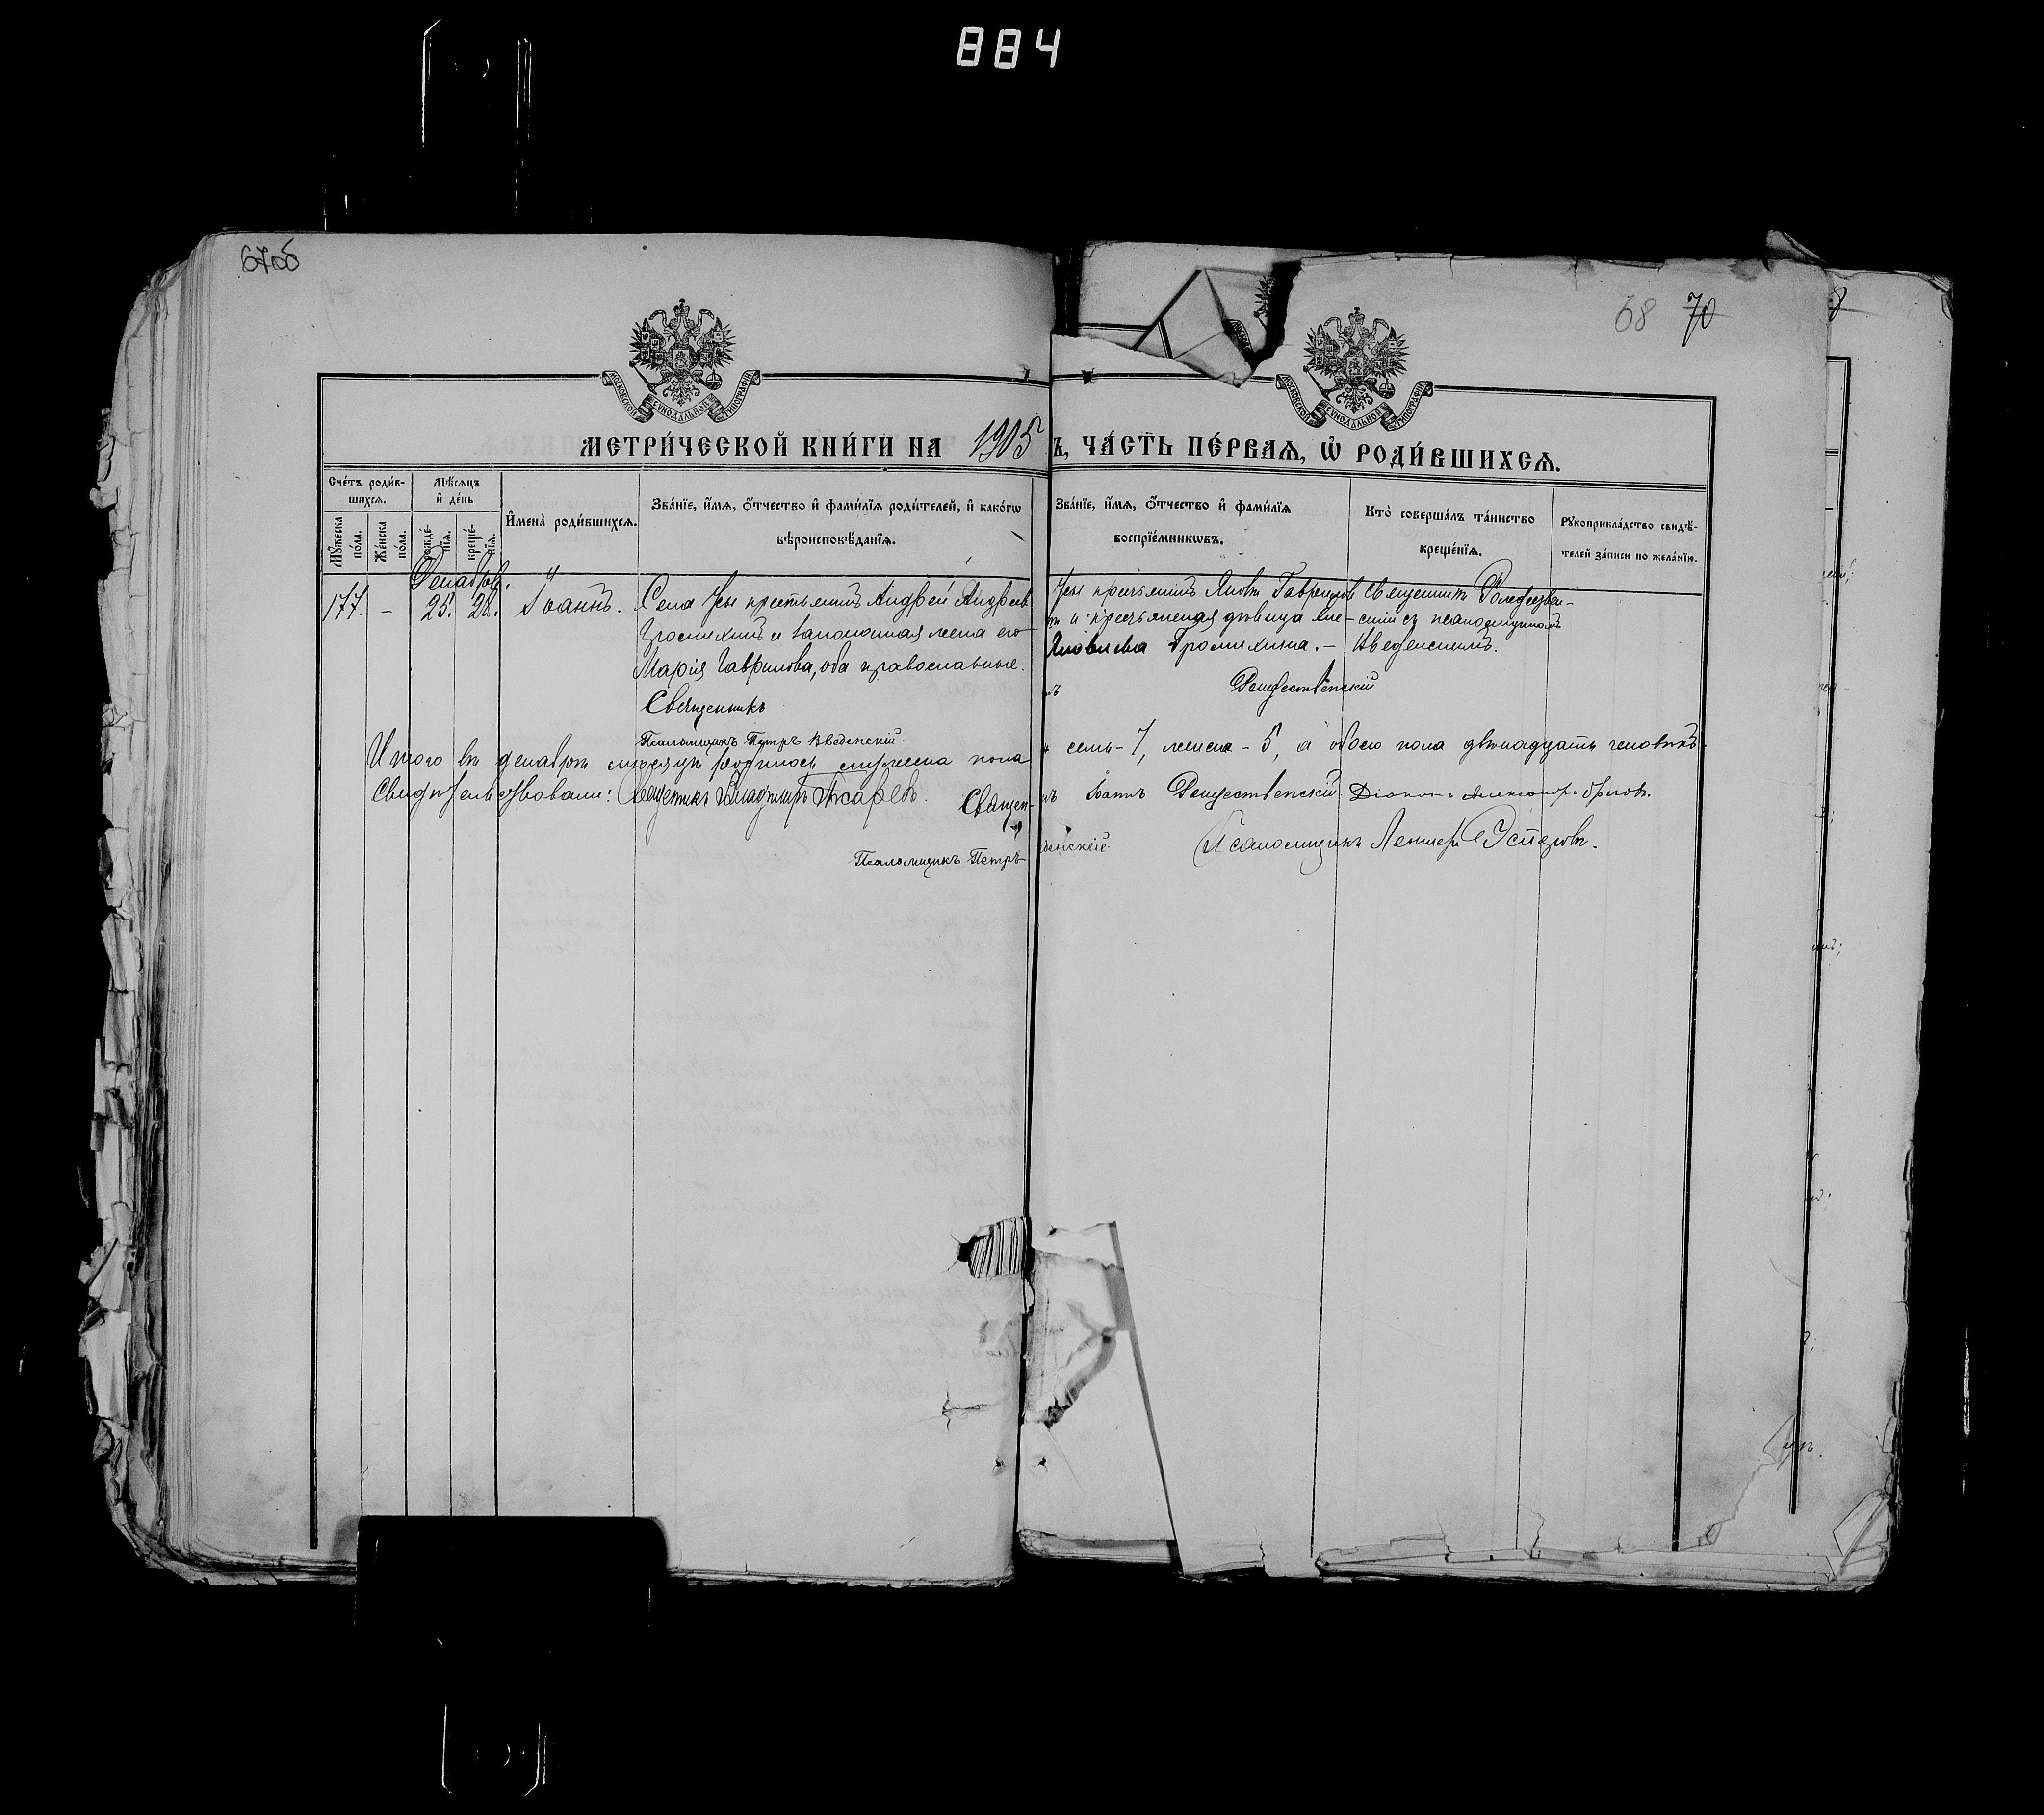 884
67об
68 70
МОСКОВСКОЙ СѴНОДАЛЬНОЙ ТИПОГРАФІИ
МОСКОВСКОЙ СѴНОДАЛЬНОЙ ТИПОГРАФІИ
МЕТРИ́ЧЕСКОЙ КНИ́ГИ НА 1905
Ъ, ЧА́СТЬ ПЕ́РВАѦ, Ѡ҆ РОДИ́ВШИХСѦ.
Сче́тъ роди́в-
шихсѧ.
Мꙋ́жеска по́ла.
Же́нска по́ла.
Мѣ́сѧцъ
и҆ де́нь
рожде́-
нїѧ.
креще́-
нїѧ.
И҆мена̀ роди́вшихсѧ.
Зва́нїе, и҆́мѧ, ѻ҆́тчество и҆ фами́лїѧ роди́телей, и҆ како́гѡ
вѣроисповѣ́данїѧ.
Зва́нїе, и҆́мѧ, ѻ҆́тчество и҆ фами́лїѧ
воспрїе́мникѡвъ.
Кто̀ соверша́лъ та́инство
креще́нїѧ.
Рꙋкоприкла́дство свидѣ́-
телей за́писи по жела́нїю.
Декабрь.
177. - 25. 28. Іоаннъ. Села Усы крестьянинъ Андрей Андреев
Громихинъ и законная жена его
Марія Гаврилова, оба православные.
Усы крестьянинъ Яковъ Гаврилов
и крестьянская дѣвица
Яковлева Громихина. -
Священникъ Рождествен-
скій съ псаломщикомъ
Введенскимъ.
Священникъ
Рождественскій
Псаломщикъ Петръ Введенскій.
Итого въ декабрѣ мѣсяцѣ родилось мужеска пола
семь - 7, женска - 5, а обоего пола двѣнадцать человѣкъ.
Свидѣтельствовали: Священникъ Владимiръ Священ-
Рождественскій. Діаконъ Александръ Орловъ.
Псаломщикъ Петръ
денскій. Псаломщикъ